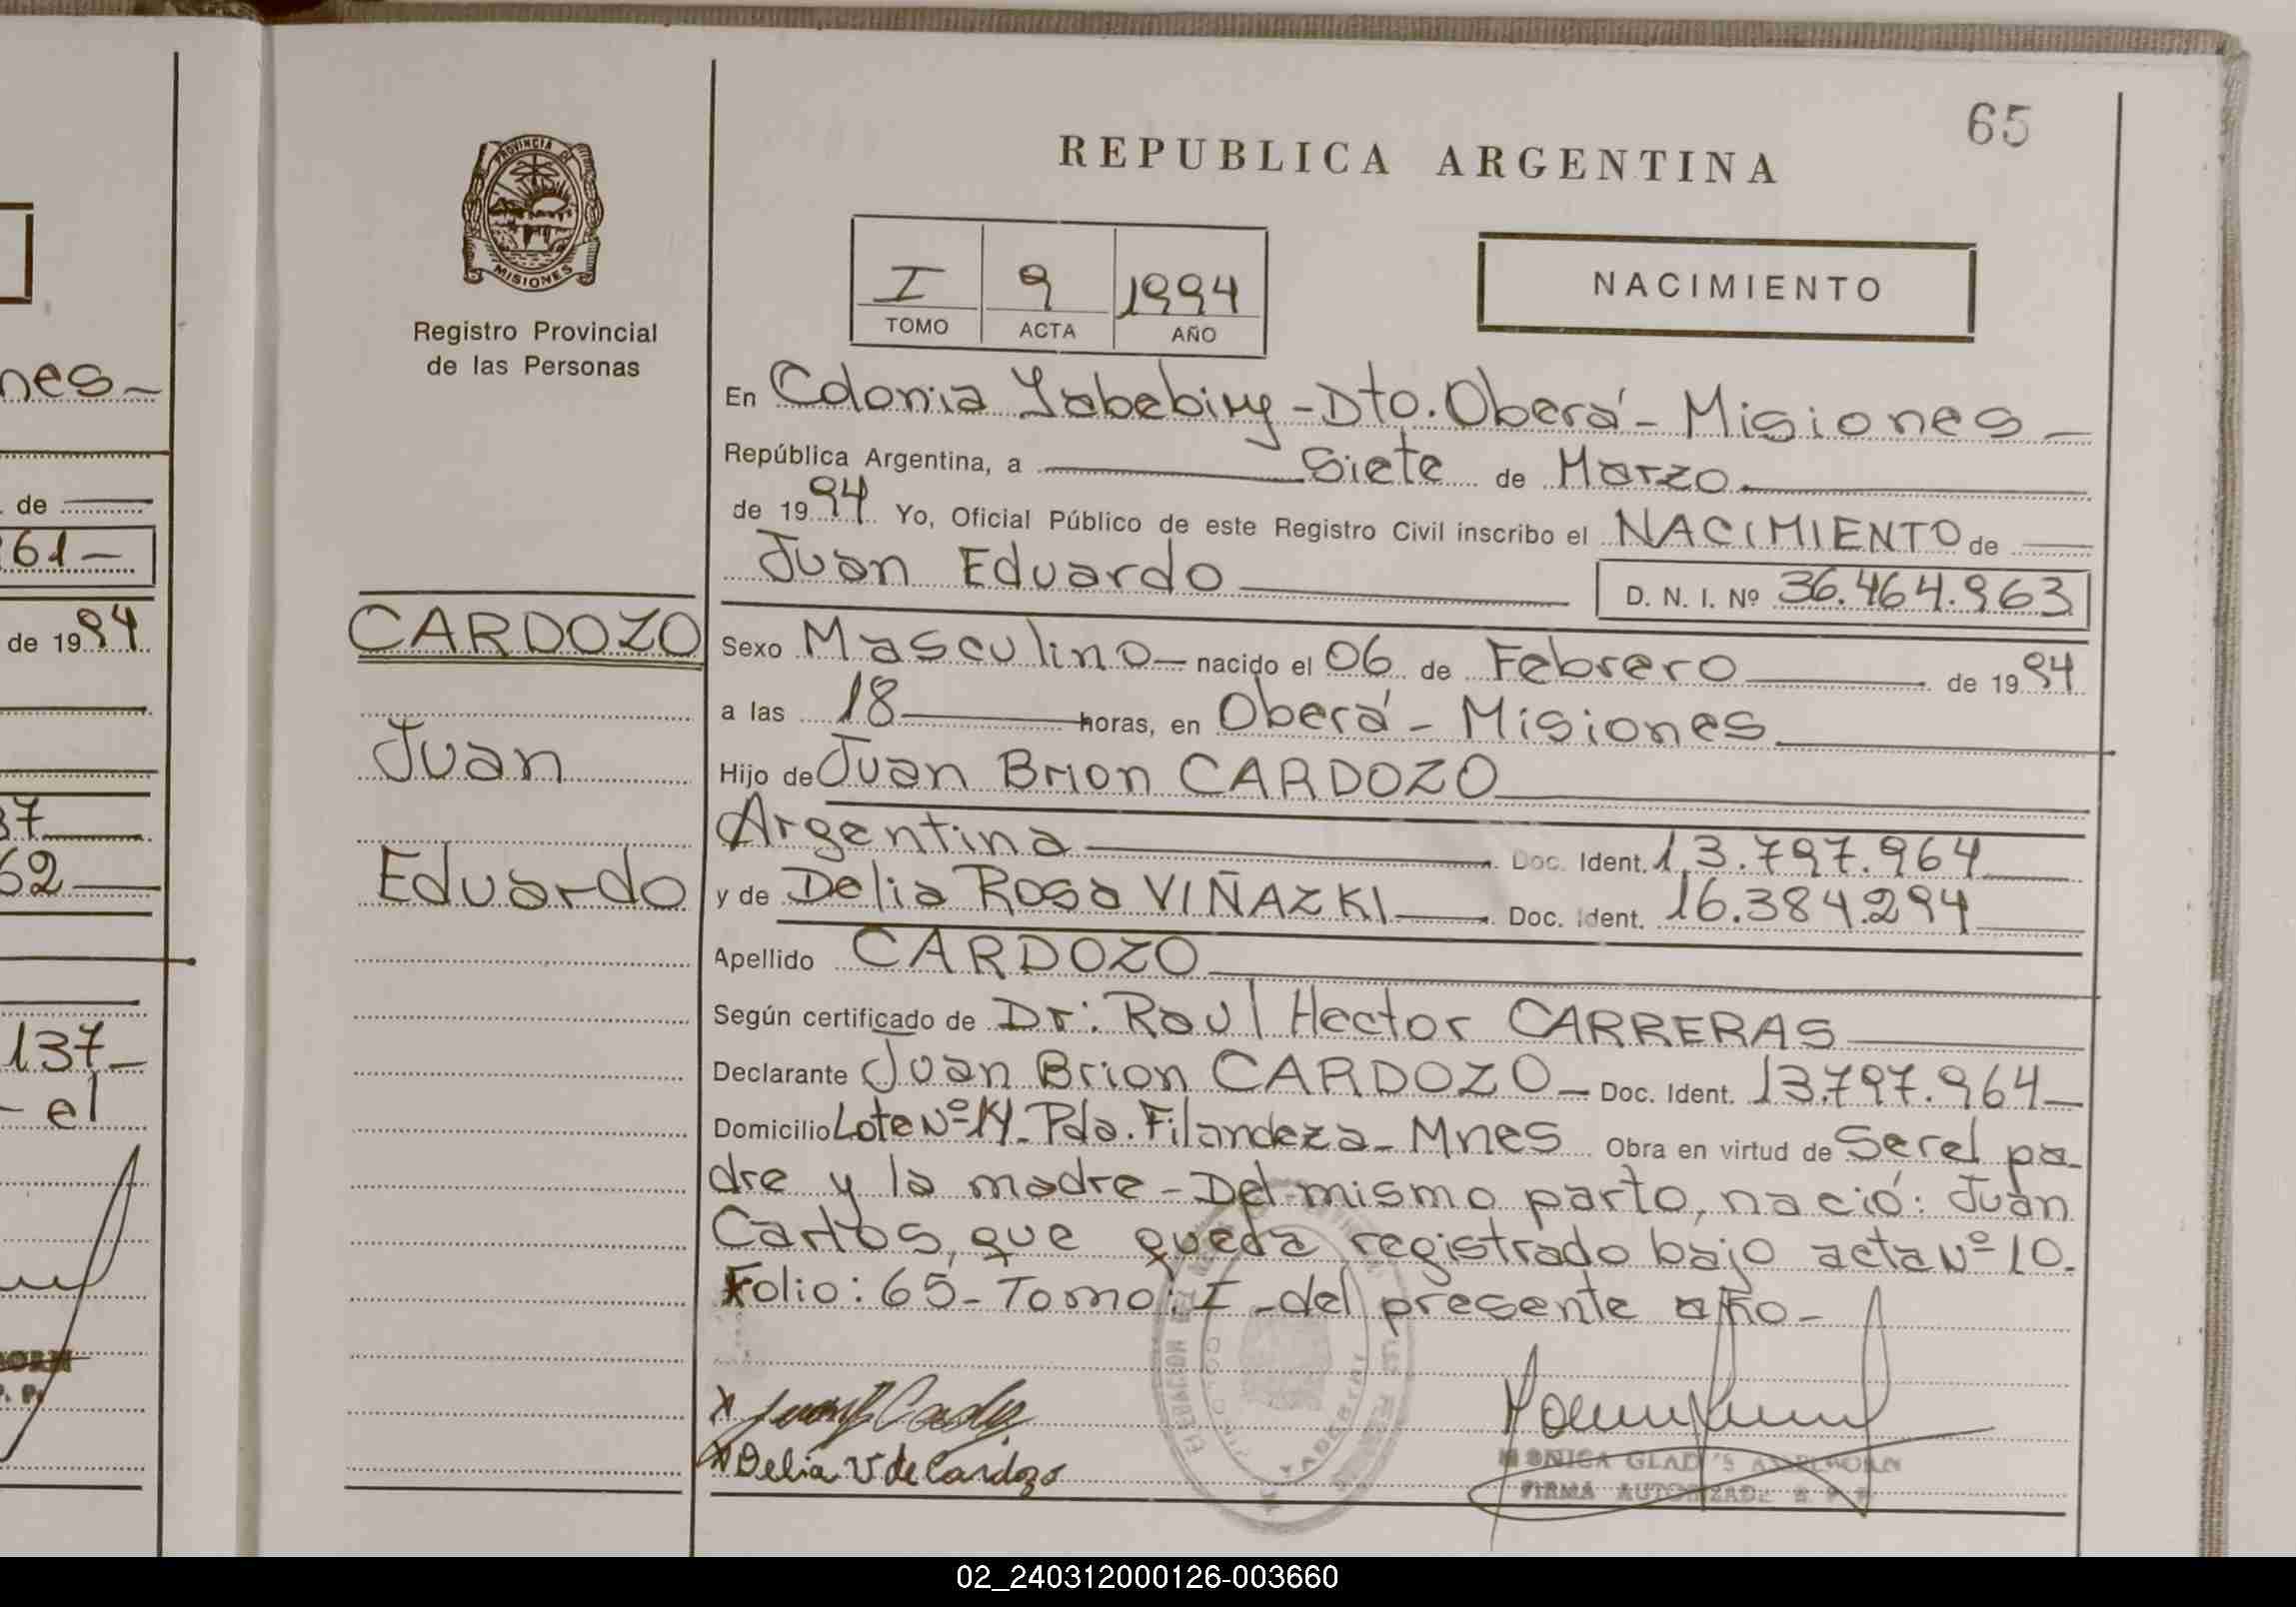 65
REPUBLICA ARGENTINA
PROVINCIA DE
MISIONES
Registro Provincial
de las Personas
I 9 1994
TOMO ACTA AÑO
NACIMIENTO
nes-
En Colonia Yabebiry - Dto. Oberá - Misiones -
República Argentina, a Siete de Marzo
de 1994 Yo, Oficial Público de este Registro Civil inscribo el NACIMIENTO de
de
61-
Juan Eduardo
D. N. I. Nº 36.464.963
CARDOZO
de 1994
Sexo Masculino - nacido el 06 de Febrero de 1994
a las 18 horas, en Oberá - Misiones
Juan
Hijo de Juan Brion CARDOZO
37
Argentina Doc. Ident. 13.797.964
62
Eduardo
y de Delia Rosa VIÑAZKI Doc. Ident. 16.384.294
Apellido CARDOZO
Según certificado de Dr: Raul Hector CARRERAS
137-
Declarante Juan Brion CARDOZO - Doc. Ident. 13.797.964-
- el
Domicilio Lote Nº 14 - Pda. Filandeza - Mnes Obra en virtud de Ser el pa-
dre y la madre - Del mismo parto, nació: Juan
Carlos, que queda registrado bajo acta Nº 10.
Folio: 65 - Tomo: I - del presente año -
Delia V de Cardozo
MONICA GLADYS
FIRMA AUTORIZADA R. P. P.
02_240312000126-003660